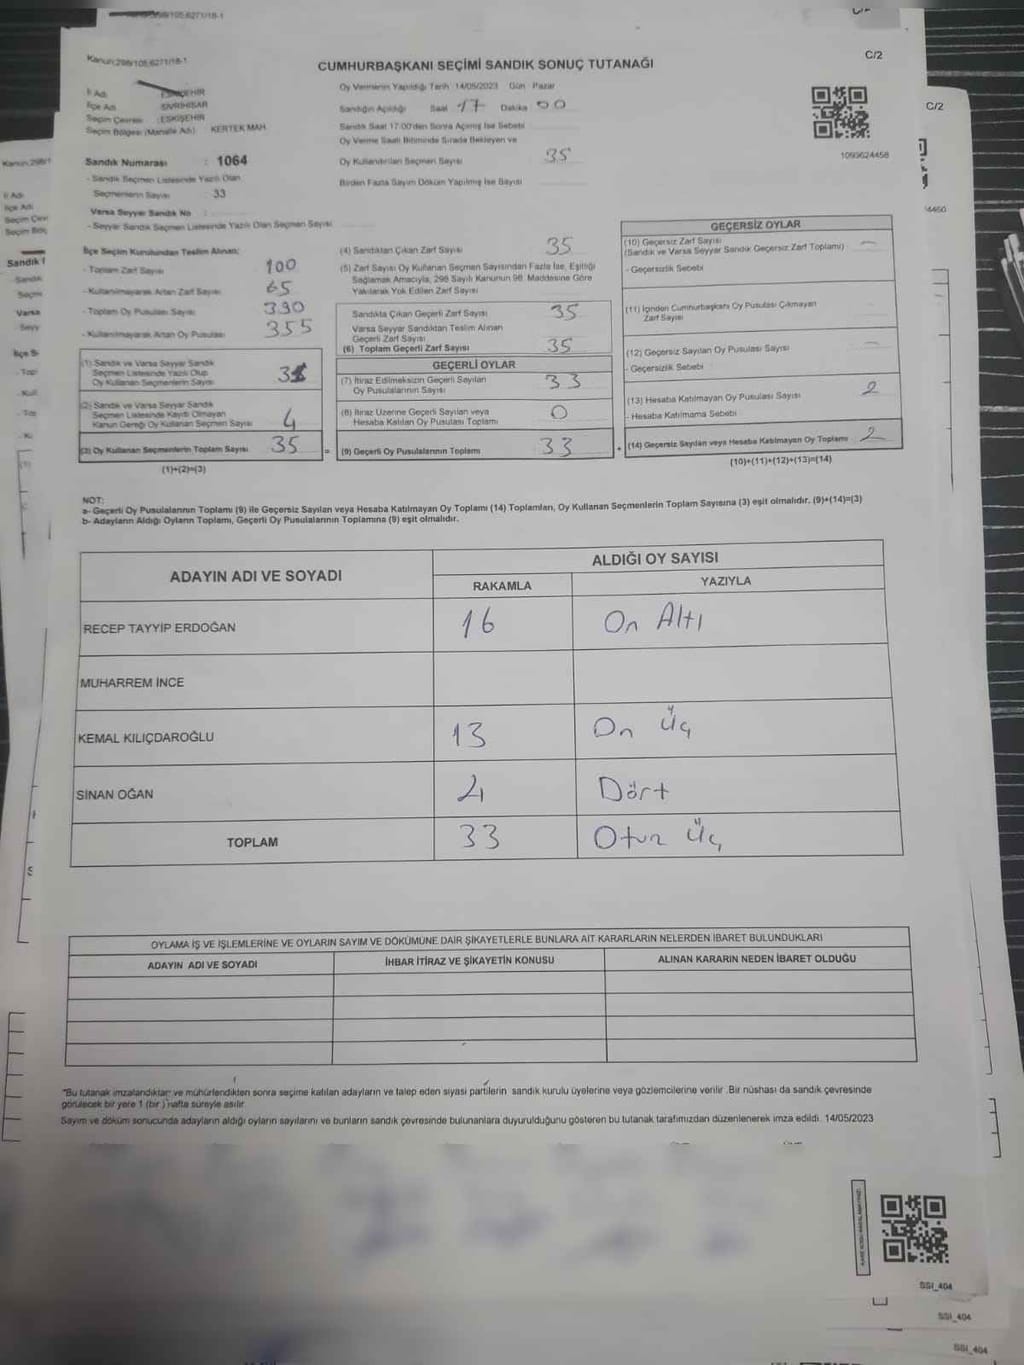 Kanun:298/105,6271/18-1
C/2
CUMHURBAŞKANI SEÇİMİ SANDIK SONUÇ TUTANAĞI
İl Adı ESKİŞEHİR
İlçe Adı SİVRİHİSAR
Seçim Çevresi : ESKİŞEHİR
Seçim Bölgesi (Mahalle Adı) KERTEK MAH.
Oy Vermenin Yapıldığı Tarih 14/05/2023 Gün Pazar
Sandığın Açıldığı Saat 17 Dakika 00
Sandık Saat 17:00'den Sonra Açılmış İse Sebebi
Oy Verme Saati Bitiminde Sırada Bekleyen ve
Oy Kullandırılan Seçmen Sayısı 35
Birden Fazla Sayım Döküm Yapılmış İse Sayısı
1093624458
Sandık Numarası : 1064
- Sandık Seçmen Listesinde Yazılı Olan
Seçmenlerin Sayısı : 33
Varsa Seyyar Sandık No :
- Seyyar Sandık Seçmen Listesinde Yazılı Olan Seçmen Sayısı
İlçe Seçim Kurulundan Teslim Alınan;
- Toplam Zarf Sayısı 100
- Kullanılmayarak Artan Zarf Sayısı 65
- Toplam Oy Pusulası Sayısı 390
- Kullanılmayarak Artan Oy Pusulası 355
(1) Sandık ve Varsa Seyyar Sandık
Seçmen Listesinde Yazılı Olup
Oy Kullanan Seçmenlerin Sayısı
(2) Sandık ve Varsa Seyyar Sandık
Seçmen Listesinde Kayıtlı Olmayan
Kanun Gereği Oy Kullanan Seçmen Sayısı 4
(3) Oy Kullanan Seçmenlerin Toplam Sayısı 35
(1)+(2)=(3)
(4) Sandıktan Çıkan Zarf Sayısı 35
(5) Zarf Sayısı Oy Kullanan Seçmen Sayısından Fazla İse, Eşitliği
Sağlamak Amacıyla, 298 Sayılı Kanunun 98. Maddesine Göre
Yakılarak Yok Edilen Zarf Sayısı
Sandıkta Çıkan Geçerli Zarf Sayısı 35
Varsa Seyyar Sandıktan Teslim Alınan
Geçerli Zarf Sayısı
(6) Toplam Geçerli Zarf Sayısı 35
GEÇERLİ OYLAR
(7) İtiraz Edilmeksizin Geçerli Sayılan
Oy Pusulalarının Sayısı 33
(8) İtiraz Üzerine Geçerli Sayılan veya
Hesaba Katılan Oy Pusulası Toplamı 0
= (9) Geçerli Oy Pusulalarının Toplamı 33
GEÇERSİZ OYLAR
(10) Geçersiz Zarf Sayısı —
(Sandık ve Varsa Seyyar Sandık Geçersiz Zarf Toplamı)
- Geçersizlik Sebebi
(11) İçinden Cumhurbaşkanı Oy Pusulası Çıkmayan
Zarf Sayısı
(12) Geçersiz Sayılan Oy Pusulası Sayısı —
- Geçersizlik Sebebi
(13) Hesaba Katılmayan Oy Pusulası Sayısı 2
- Hesaba Katılmama Sebebi
+ (14) Geçersiz Sayılan veya Hesaba Katılmayan Oy Toplamı 2
(10)+(11)+(12)+(13)=(14)
NOT:
a- Geçerli Oy Pusulalarının Toplamı (9) ile Geçersiz Sayılan veya Hesaba Katılmayan Oy Toplamı (14) Toplamları, Oy Kullanan Seçmenlerin Toplam Sayısına (3) eşit olmalıdır. (9)+(14)=(3)
b- Adayların Aldığı Oyların Toplamı, Geçerli Oy Pusulalarının Toplamına (9) eşit olmalıdır.
ADAYIN ADI VE SOYADI
ALDIĞI OY SAYISI
RAKAMLA YAZIYLA
RECEP TAYYİP ERDOĞAN 16 On Altı
MUHARREM İNCE
KEMAL KILIÇDAROĞLU 13 On Üç
SİNAN OĞAN 4 Dört
TOPLAM 33 Otuz Üç
OYLAMA İŞ VE İŞLEMLERİNE VE OYLARIN SAYIM VE DÖKÜMÜNE DAİR ŞİKAYETLERLE BUNLARA AİT KARARLARIN NELERDEN İBARET BULUNDUKLARI
ADAYIN ADI VE SOYADI İHBAR İTİRAZ VE ŞİKAYETİN KONUSU ALINAN KARARIN NEDEN İBARET OLDUĞU
*Bu tutanak imzalandıktan ve mühürlendikten sonra seçime katılan adayların ve talep eden siyasi partilerin sandık kurulu üyelerine veya gözlemcilerine verilir .Bir nüshası da sandık çevresinde
görülecek bir yere 1 (bir ) hafta süreyle asılır.
Sayım ve döküm sonucunda adayların aldığı oyların sayılarını ve bunların sandık çevresinde bulunanlara duyurulduğunu gösteren bu tutanak tarafımızdan düzenlenerek imza edildi. 14/05/2023
SSI_404
SSI_404
SSI_404